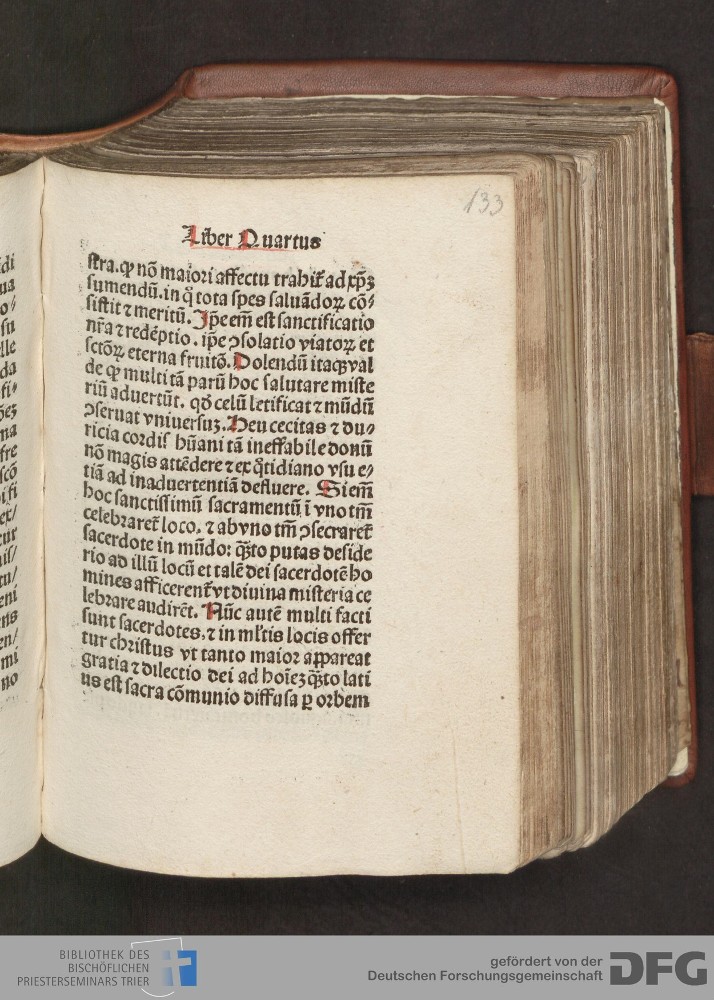 133
Liber Quartus
stra. ꝙ nō maiori affectu trahiẜ ad xp̄ꝫ
sumendū. in q̄ tota spes saluādoꝝ cō⸗
sistit ⁊ meritū. Ip̄e em̄ est sanctificatio
nr̄a ⁊ redēptio. ip̄e ↄsolatio viatoꝝ et
sctōꝝ eterna fruitō. Dolendū itaqꝫ val
de ꝙ multi tā parū hoc salutare miste
riū aduertūt. qđ celū letificat ⁊ mūdū
ↄseruat vniuersuꝫ. Heu cecitas ⁊ du⸗
ricia cordis hūani tā ineffabile donū
nō magis attēdere ⁊ ex q̄tidiano vsu e⸗
tiā ad inaduertentiā defluere. Si em̄
hoc sanctissimū sacramentū ī vno tm̄
celebraret̄ loco. ⁊ ab vno tm̄ ↄsecraret̄
sacerdote in mūdo: qͣꝫto putas deside
rio ad illū locū et talē dei sacerdotē ho
mines afficerent̄ vt diuina misteria ce
lebrare audirēt. Nūc autē multi facti
sunt sacerdotes. ⁊ in ml̄tis locis offer
tur christus vt tanto maior appareat
gratia ⁊ dilectio dei ad hoīeꝫ qͣꝫto lati
us est sacra cōmunio diffusa ꝑ orbem
BIBLIOTHEK DES
BISCHÖFLICHEN
PRIESTERSEMINARS TRIER
gefördert von der
Deutschen Forschungsgemeinschaft
DFG